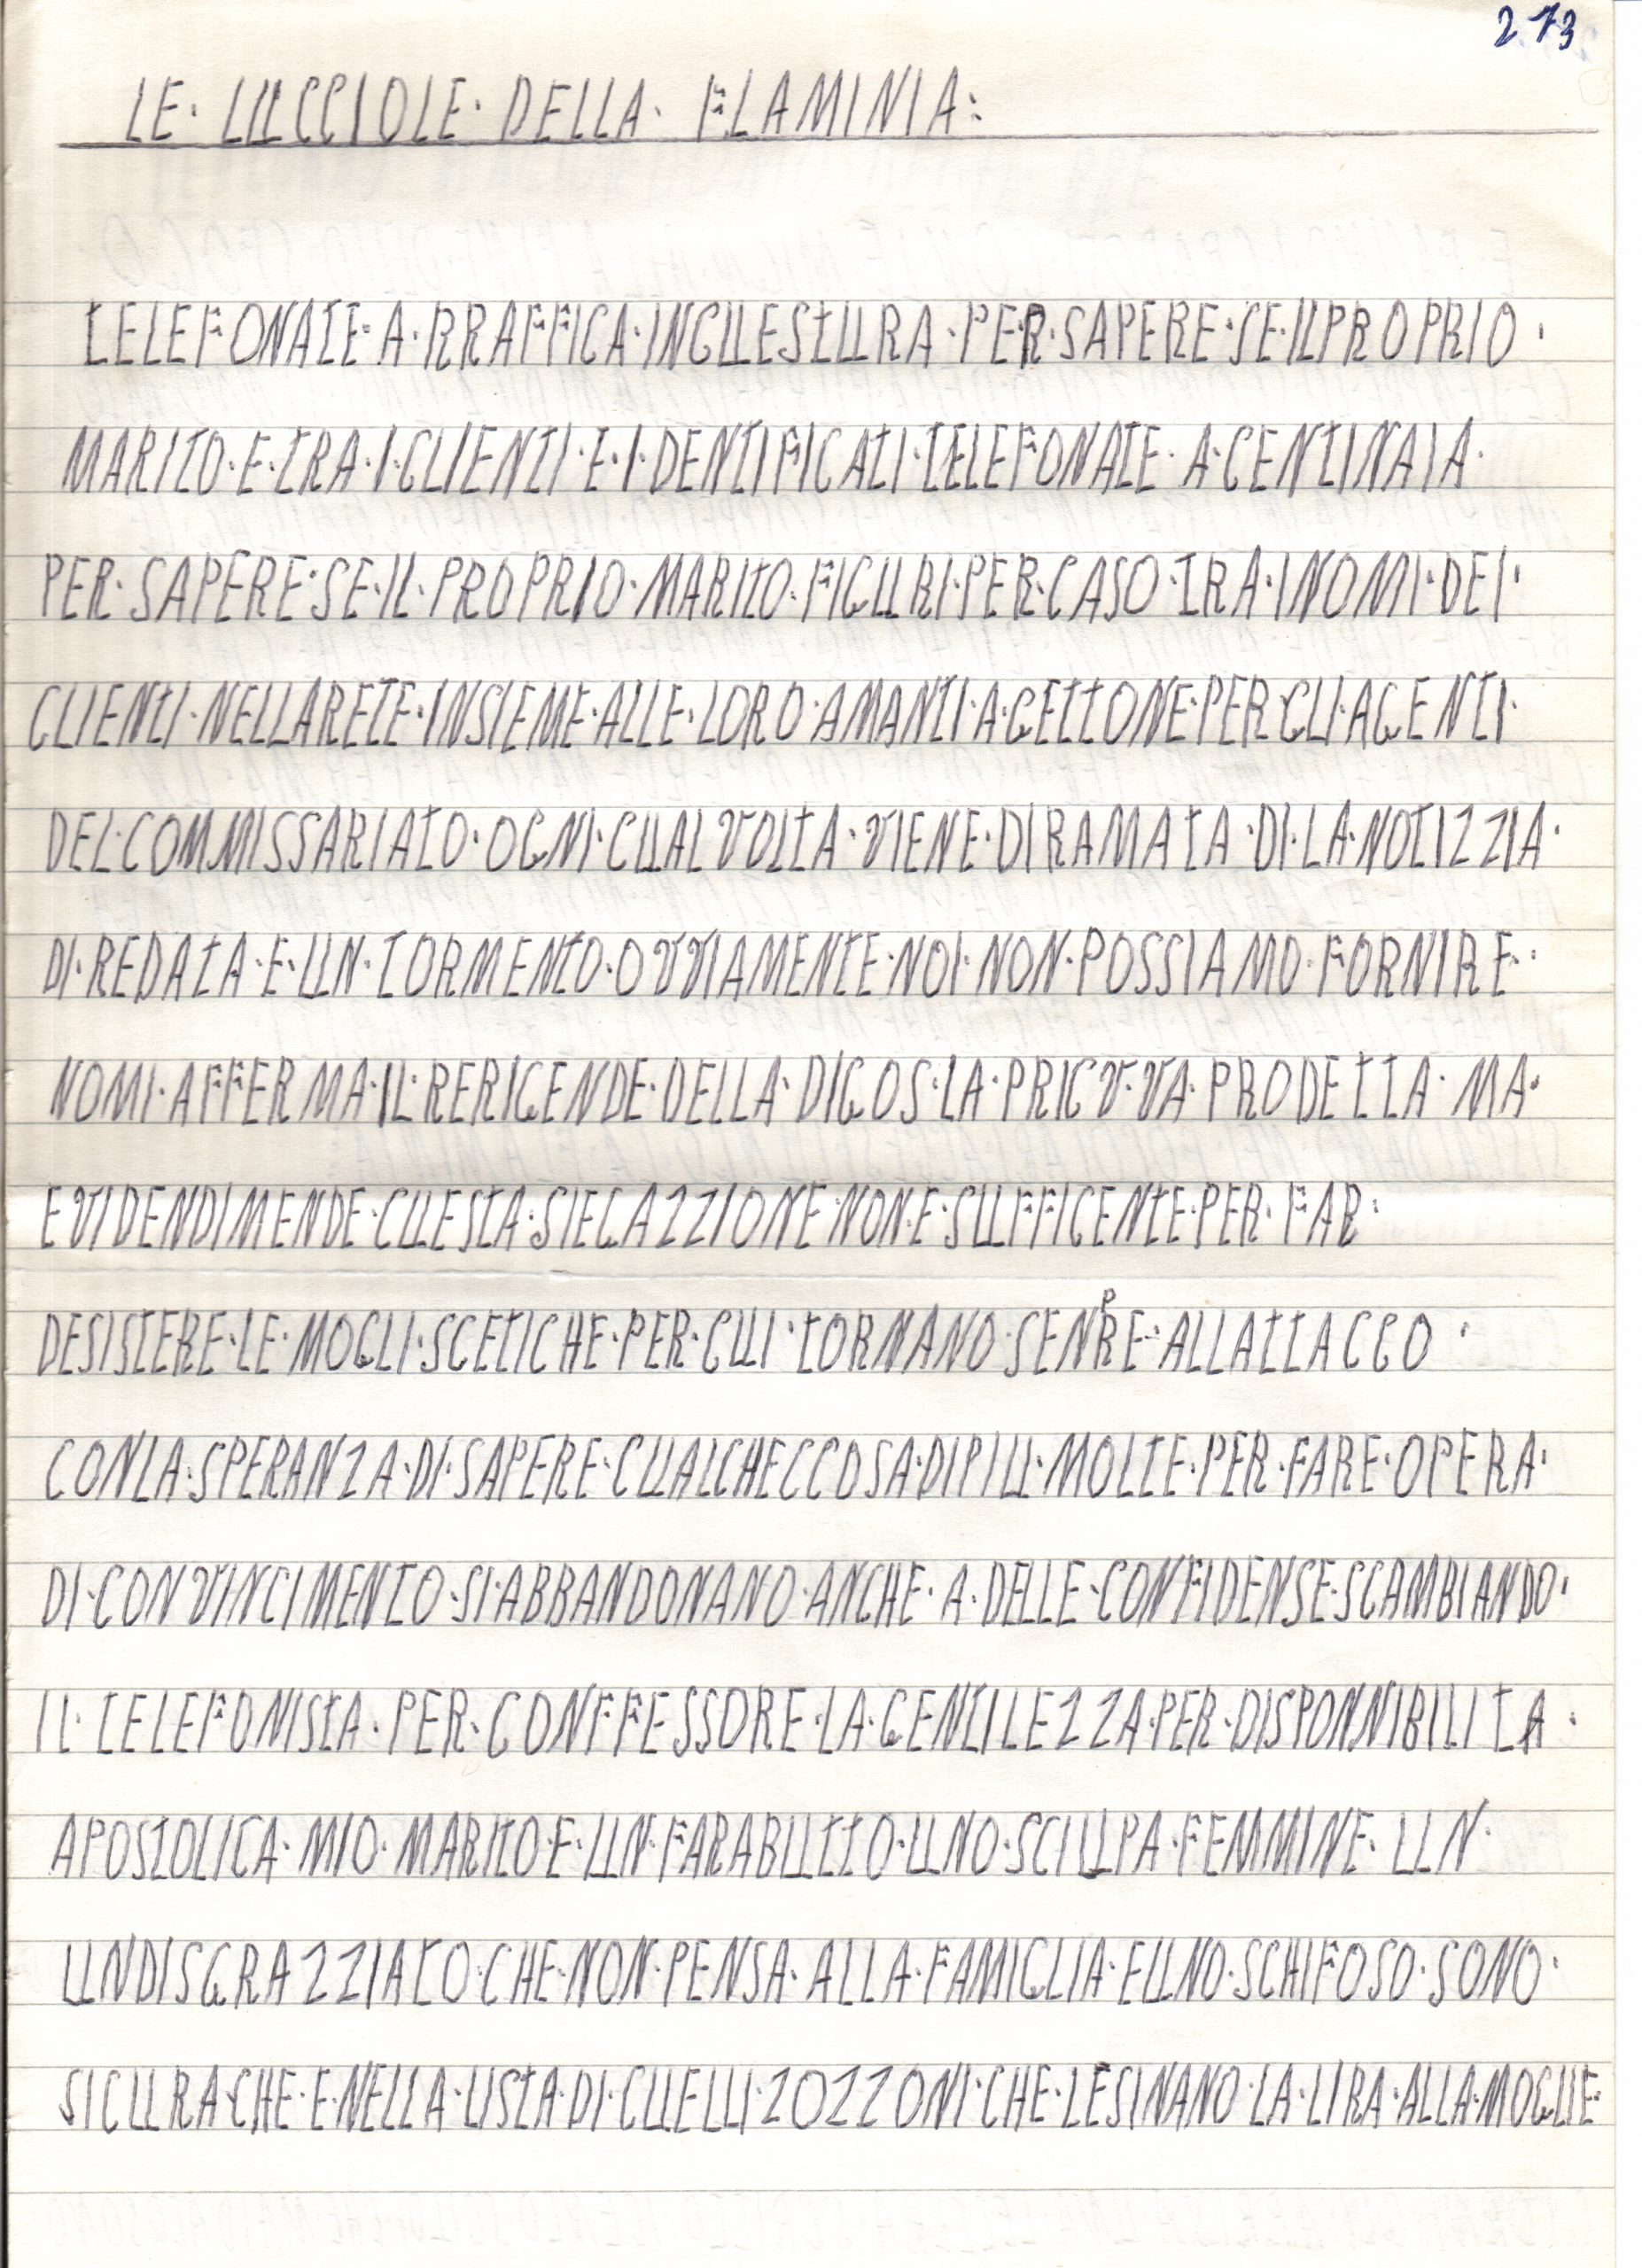 273
LE· LUCCIOLE· DELLA· FLAMINIA:
TELEFONATE·A·RRAFFICA·INCUESTURA·PER·SAPERE·SE·ILPROPRIO·
MARITO·E·TRA·I·CLIENTI·E·I·DENTIFICATI·TELEFONATE·A·CENTINAIA·
PER·SAPERE·SE·IL·PROPRIO·MARITO·FIGURI·PER·CASO·TRA·INOMI·DEI·
CLIENTI·NELLARETE·INSIEME·ALLE·LORO·AMANTI·A·GETTONE·PER·GLI·AGENTI·
DEL·COMMISSARIATO·OGNI·CUALVOLTA·VIENE·DIRAMATA·DI·LA·NOTIZZIA·
DI·REDATA·E·UN·TORMENTO·OVVIAMENTE·NOI·NON·POSSIAMO·FORNIRE·
NOMI·AFFERMA·IL·RERIGENDE·DELLA·DIGOS·LA·PRIGV·VA·PRODETTA·MA·
EVIDENDIMENDE·CUESTA·SIEGAZZIONE·NON·E·SUFFICENTE·PER·FAR·
DESISTERE·LE·MOGLI·SCETICHE·PER·CUI·TORNANO·SENPRE·ALLATTACCO·
CONLA·SPERANZA·DI·SAPERE·CUALCHECCOSA·DIPIU·MOLTE·PER·FARE·OPERA·
DI·CONVINCIMENTO·SI·ABBANDONANO·ANCHE·A·DELLE·CONFIDENSE·SCAMBIANDO·
IL·TELEFONISTA·PER·CONFFESSORE·LA·GENTILEZZA·PER·DISPONNIBILITA·
APOSTOLICA·MIO·MARITO·E·UN·FARABUTTO·UNO·SCIUPA·FEMMINE·UN·
UNDISGRAZZIATO·CHE·NON·PENSA·ALLA·FAMIGLIA·EUNO·SCHIFOSO·SONO·
SICURA·CHE·E·NELLA·LISTA·DI·CUELLI·ZOZZONI·CHE·LESINANO·LA·LIRA·ALLA·MOGLIE·